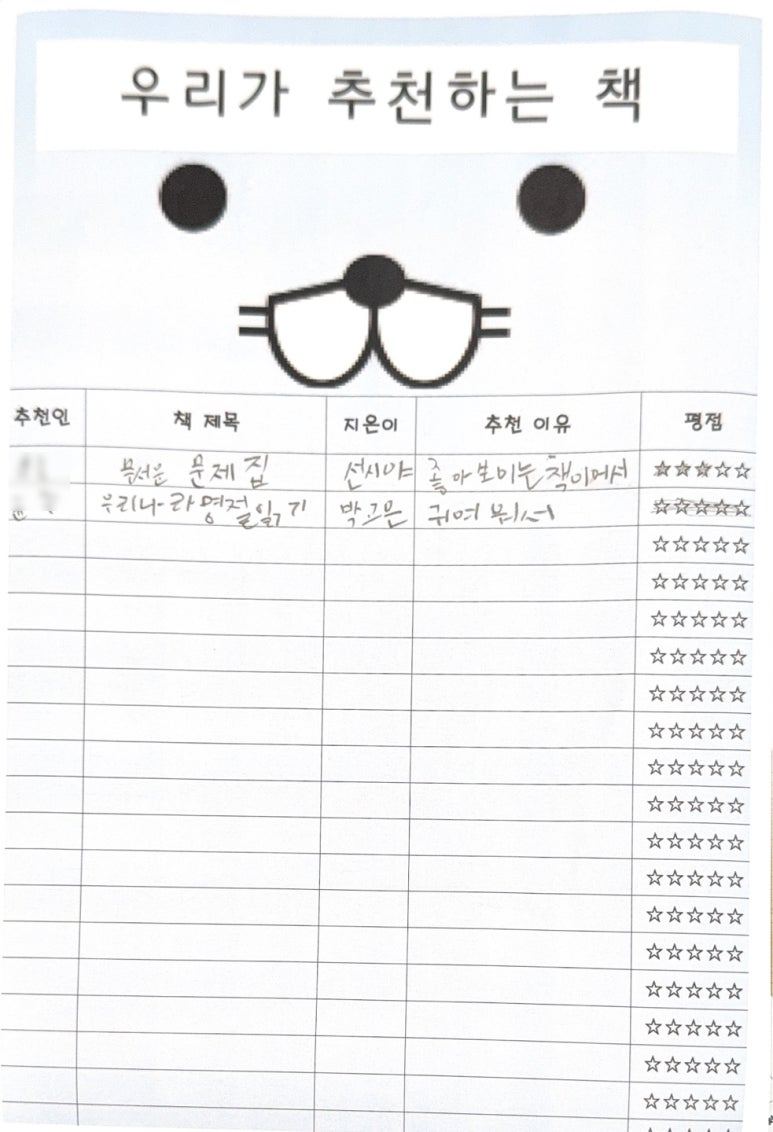 우리가 추천하는 책
추천인 책 제목 지은이 추천 이유 평점
무서운 문제집 선시야 좋아보이는 책이여서 ★★★☆☆
우리나라 명절일기 박고은 귀여 워서 ★★★★★
☆☆☆☆☆
☆☆☆☆☆
☆☆☆☆☆
☆☆☆☆☆
☆☆☆☆☆
☆☆☆☆☆
☆☆☆☆☆
☆☆☆☆☆
☆☆☆☆☆
☆☆☆☆☆
☆☆☆☆☆
☆☆☆☆☆
☆☆☆☆☆
☆☆☆☆☆
☆☆☆☆☆
☆☆☆☆☆